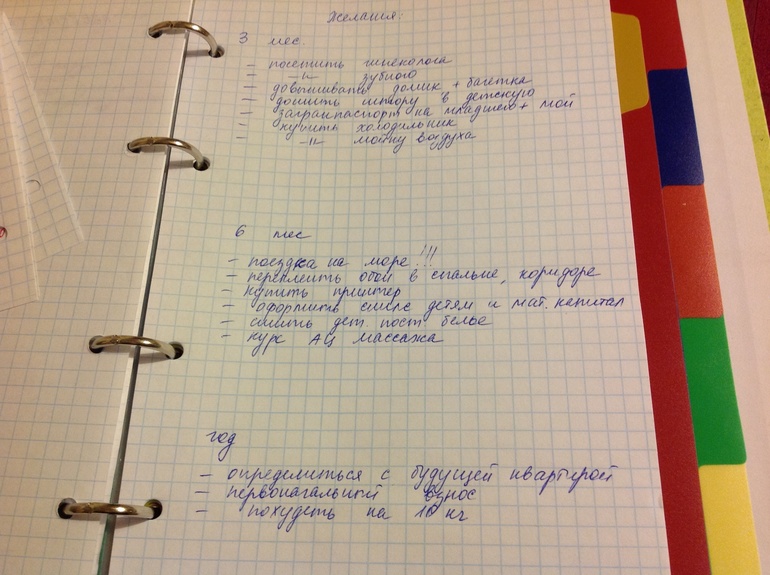 Желания:
3 мес.
- посетить гинеколога
- -"- зубного
- довышивать домик + багетка
- дошить штору в детскую
- загранпаспорт на младшего + мой
- купить холодильник
- -"- мойку воздуха
6 мес
- поездка на море!!!
- переклеить обои в спальне, коридоре
- купить принтер
- оформить детям и мат. капитал
- сшить дет. пост. белье
- курс АЦ массажа
год
- определиться с будущей квартирой
- первоначальный взнос
- похудеть на 10 кг